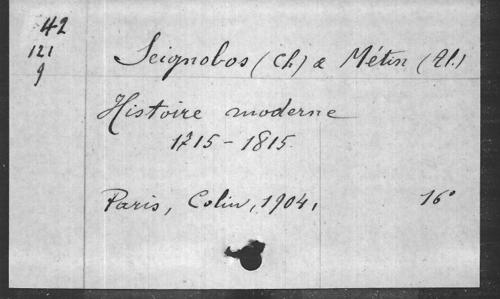 42
121
9
Seignobos (Ch) & Métin (Al.)
Histoire moderne
1715-1815.
Paris, Colin, 1904, 16°